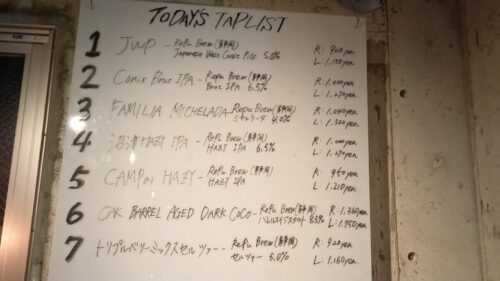 TODAY'S TAPLIST
1 JWP - RePu Brew(静岡) R: 900yen
Japanese West Coast Pils 5.0% L: 1,150yen
2 Comix Brut IPA - Repu Brew(静岡) R: 1,000yen
Brut IPA 6.5% L: 1,270yen
3 FAMILIA MICHELADA - Repu Brew(静岡) R: 1,040yen
ミチェラーダ 4.0% L: 1,320yen
4 沼津HAZY IPA - RePu Brew(静岡) R: 1,000yen
HAZY IPA 6.5% L: 1,270yen
5 CAMPai HAZY - RePu Brew(静岡) R: 950yen
HAZY IPA L: 1,210yen
6 OAK BARREL AGED DARK CoCo - RePu Brew(静岡) R: 1,360yen
バレルエイジスタウト 8.5% L: 1,750yen
7 トリプルベリーミックスセルツァー - RePu Brew(静岡) R: 920yen
セルツァー 5.0% L: 1,160yen